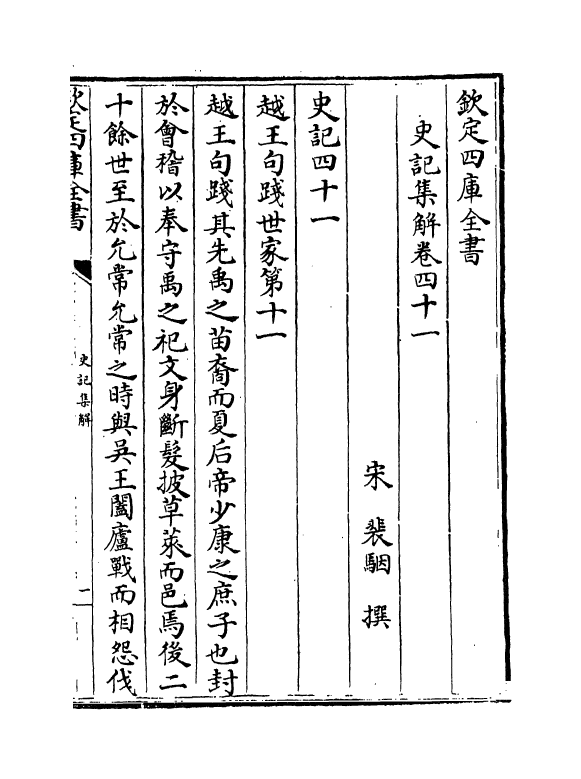 欽定四庫全書
史記集解卷四十一
宋 裴駰 撰
史記四十一
越王句踐世家第十一
越王句踐其先禹之苗裔而夏后帝少康之庶子也封
於會稽以奉守禹之祀文身斷髮披草萊而邑焉後二
十餘世至於允常允常之時與吳王闔廬戰而相怨伐
欽定四庫全書
史記集解